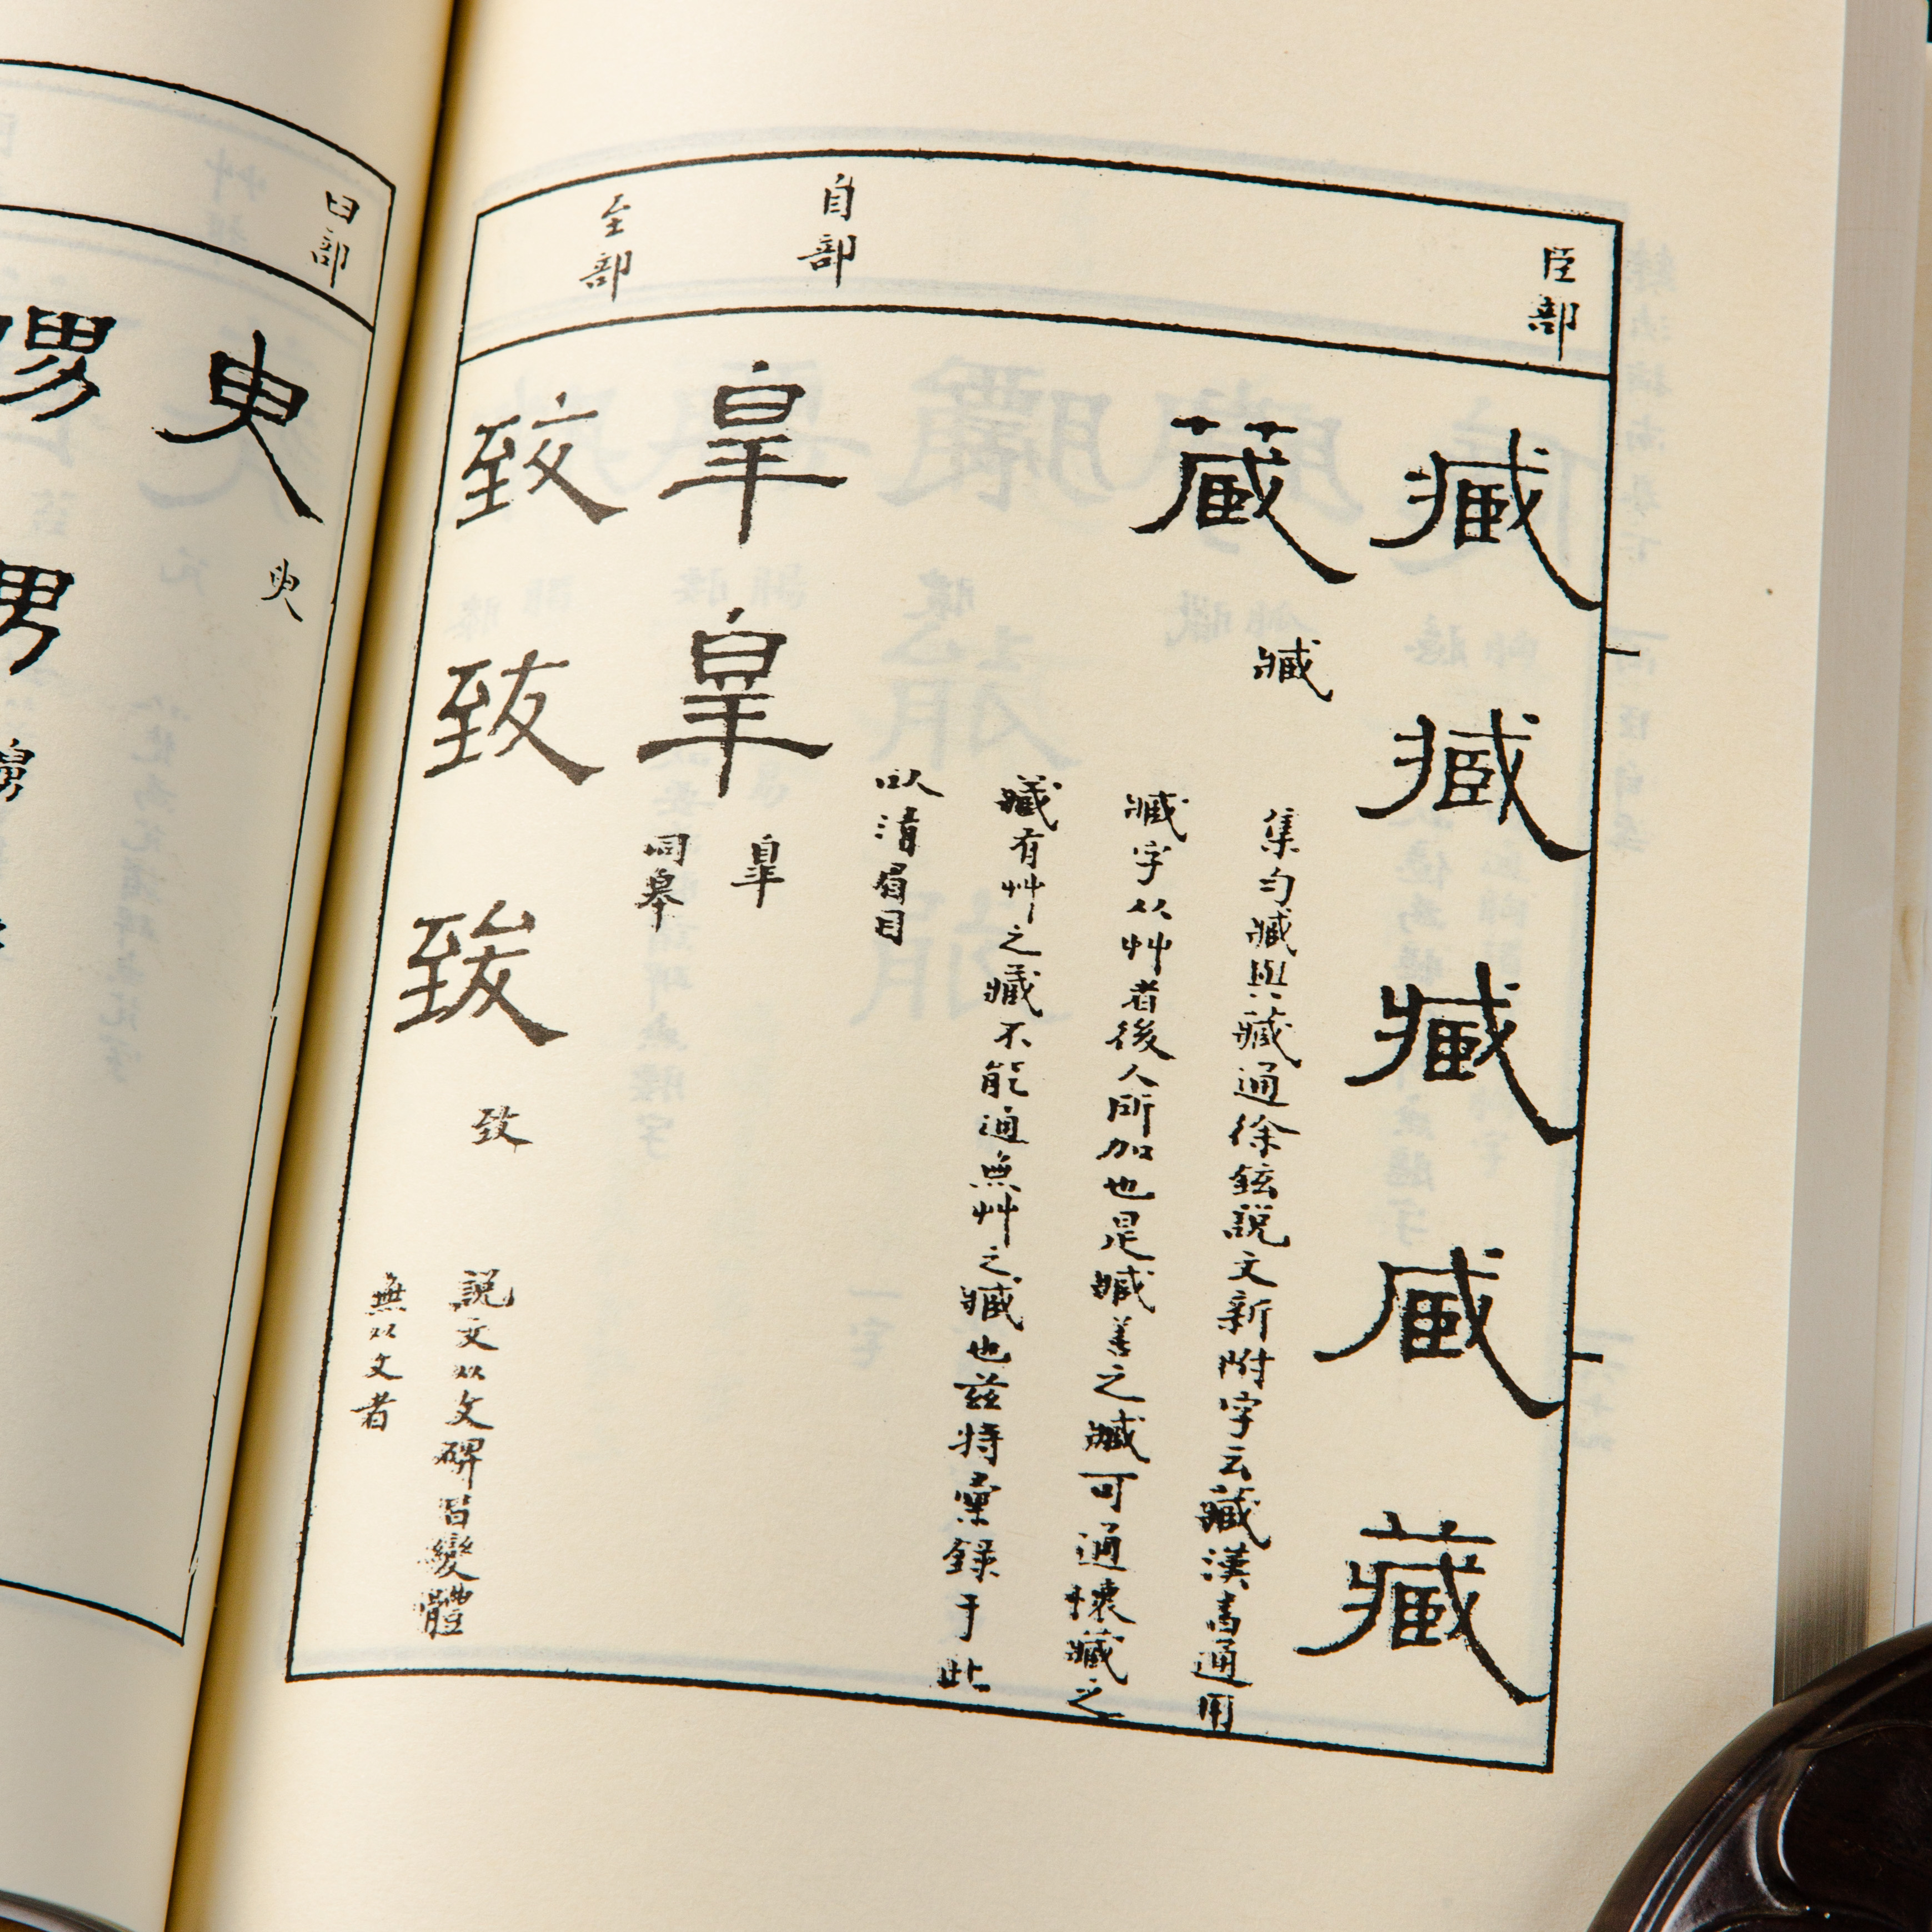 臣部
臧
臧
臧
臧
藏
藏
臧
集匀臧與藏通徐鉉說文新附字云藏漢書通用
臧字从艸者後人所加也是臧善之臧可通懷藏之
藏有艸之藏不能通無艸之臧也茲特彙録于此
以清眉目
自部
皐
皐
皐
同皋
至部
致
致
致
致
說文从夊碑皆變體
無从夂者
臼部
臾
臾